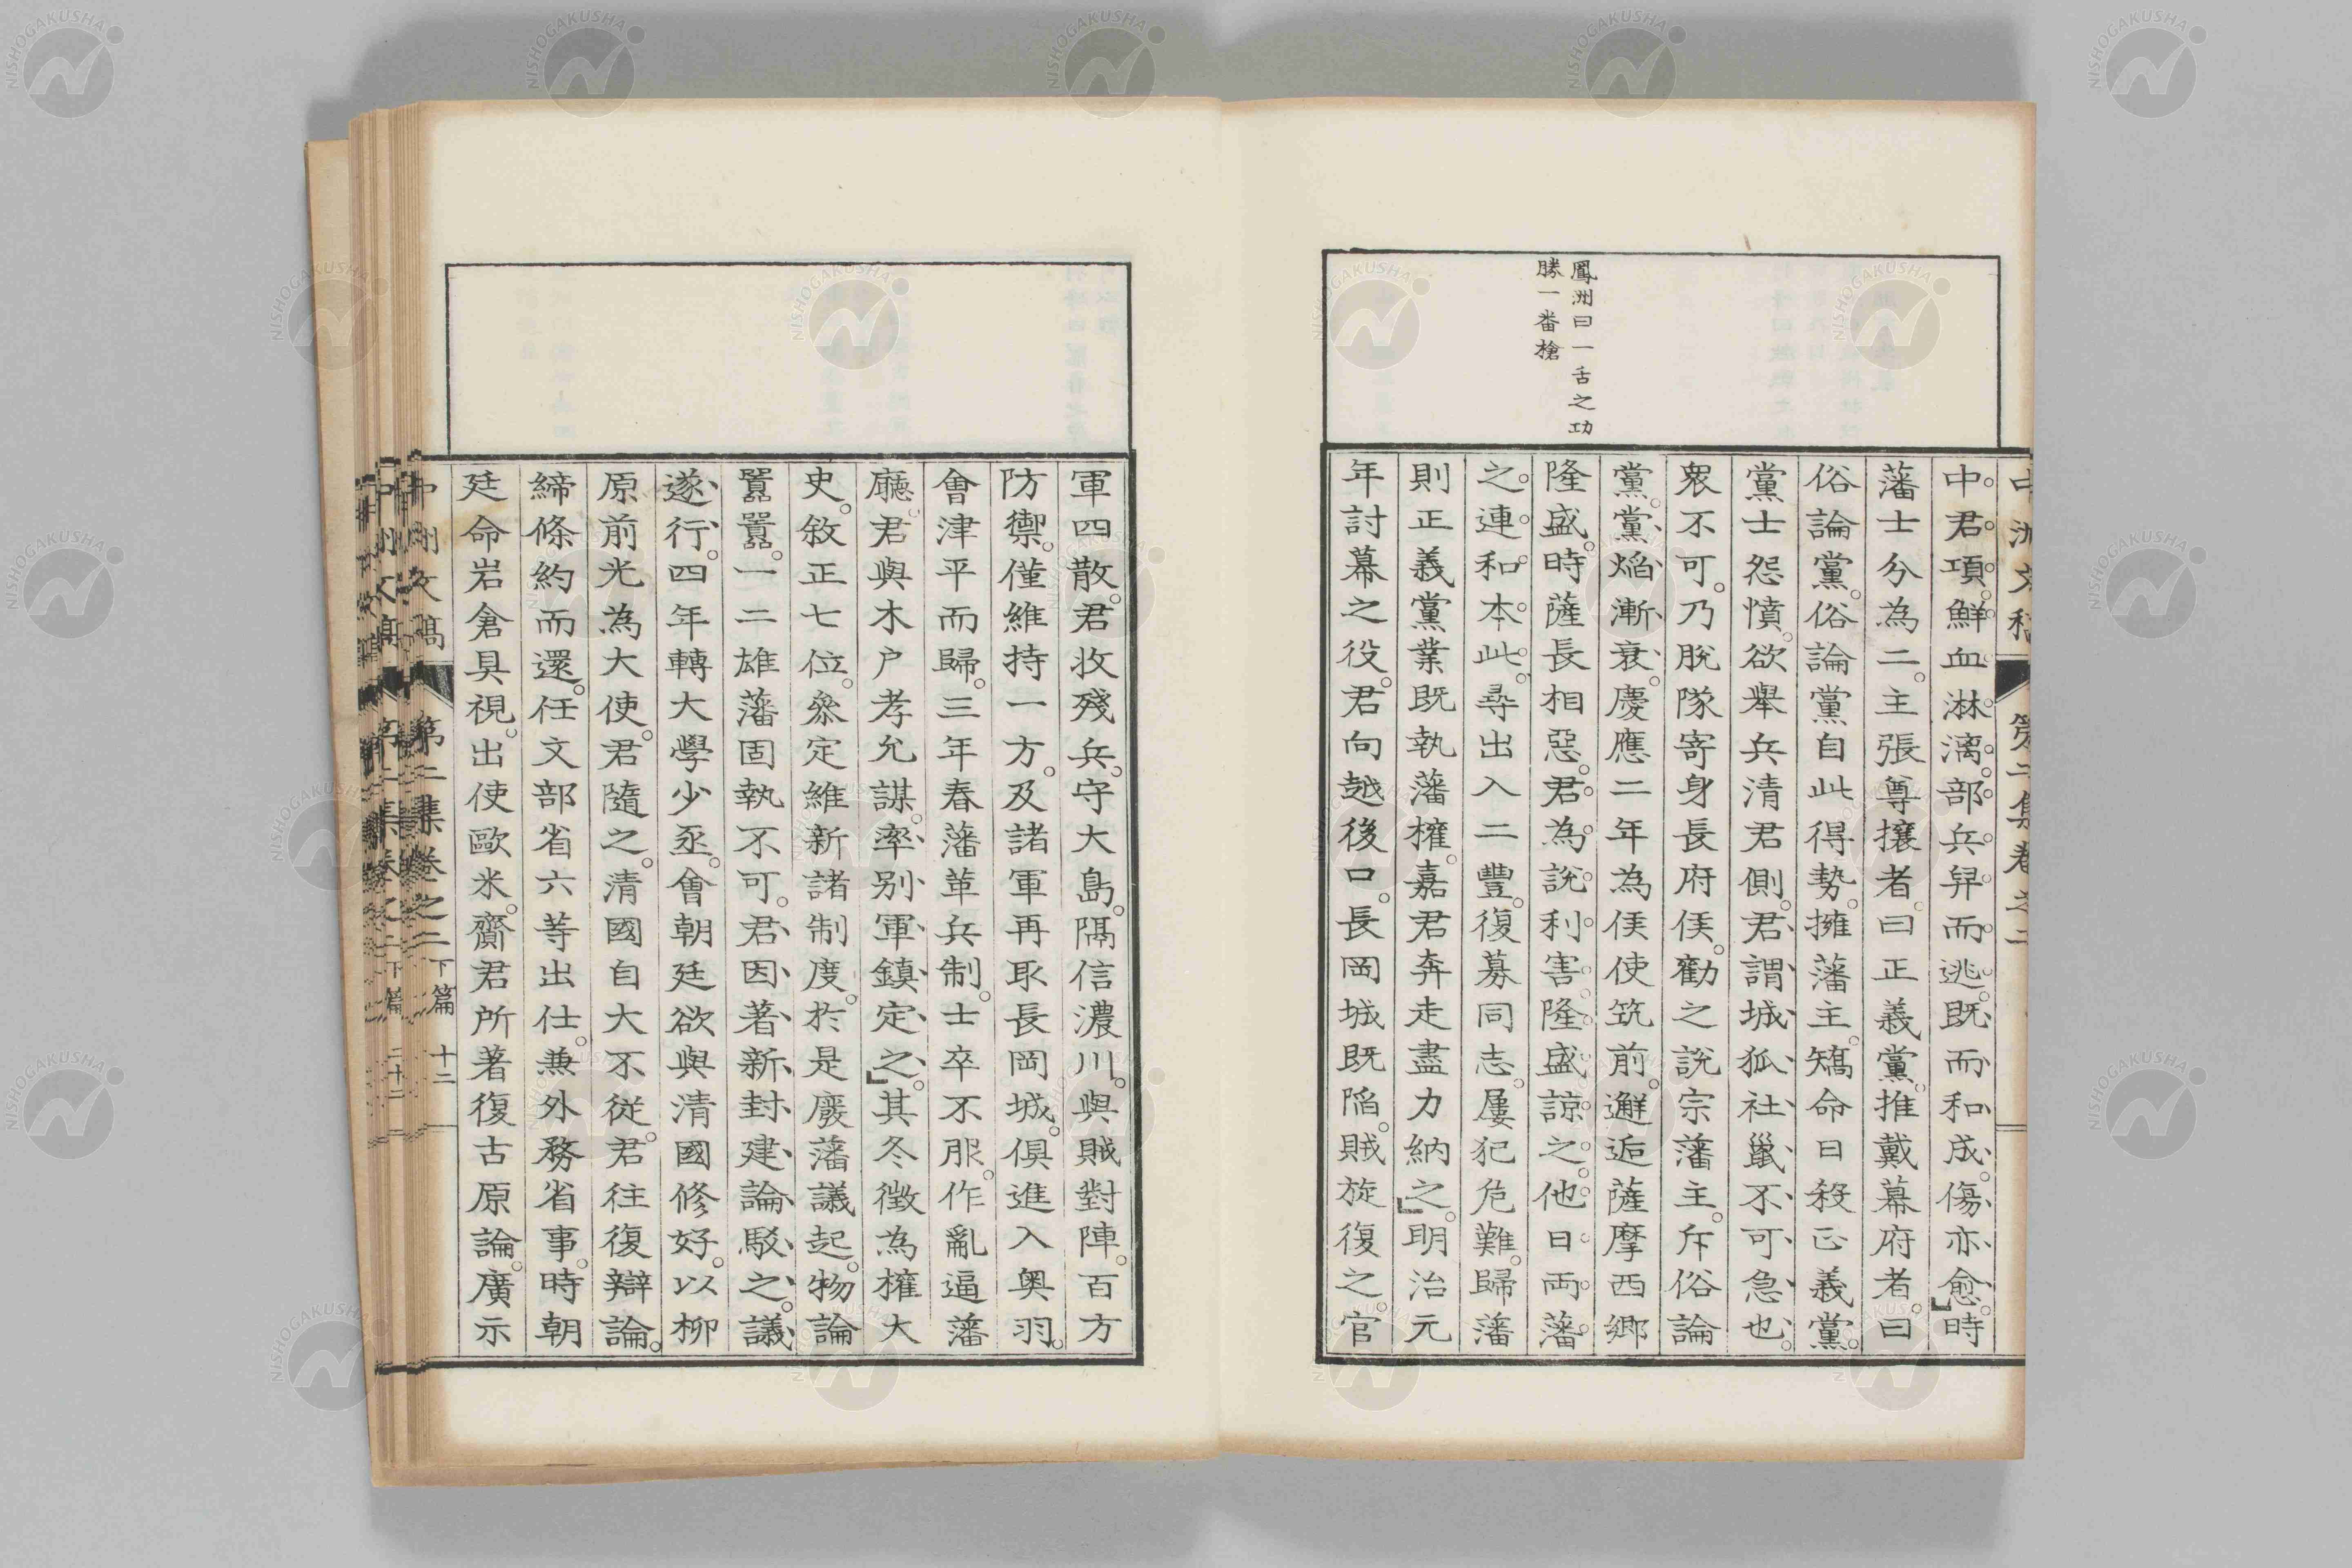 鳳洲曰一舌之功
勝一番槍
中洲文稿 第二集卷之二
中君項。鮮血淋漓。部兵舁而逃。既而和成。傷亦愈。時
藩士分為二。主張尊攘者。曰正義黨。推戴幕府者。曰
俗論黨。俗論黨自此得勢。擁藩主。矯命日殺正義黨。
黨士怨憤。欲舉兵清君側。君謂城狐社鼠不可急也。
衆不可。乃脫隊寄身長府侯。勸之說宗藩主。斥俗論
黨。黨焰漸衰。慶應二年為侯使筑前。邂逅薩摩西鄉
隆盛。時薩長相惡。君為說利害。隆盛諒之。他日両藩
之連和本此。尋出入二豐。復募同志。屢犯危難。歸藩
則正義黨業既執藩權。嘉君奔走盡力納之。明治元
年討幕之役。君向越後口。長岡城既陷。賊旋復之。官
軍四散。君收殘兵。守大島。隔信濃川。與賊對陣。百方
防禦。僅維持一方。及諸軍再取長岡城。俱進入奧羽。
會津平而歸。三年春藩革兵制。士卒不服。作亂逼藩
廳。君與木戶孝允謀。率別軍鎮定之。其冬徵為權大
史。敘正七位。參定維新諸制度。於是廢藩議起。物論
囂囂。一二雄藩固執不可。君因著新封建論駁之。議
遂行。四年轉大學少丞。會朝廷欲與清國修好。以柳
原前光為大使。君隨之。清國自大不從。君往復辯論。
締條約而還。任文部省六等出仕。兼外務省事。時朝
廷命岩倉具視。出使歐米。齎君所著復古原論。廣示
中洲文稿 第二集卷之二 下篇 十二